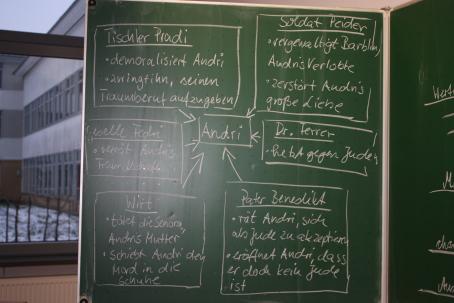 Tischler Pradi
• demoralisiert Andri
• zwingt ihn, seinen
Traumberuf aufzugeben
Soldat Peider
• vergewaltigt Barblin,
Andris Verlobte
• zerstört Andris
große Liebe
Geselle Fedri
• verrät Andris
Andri
Dr. Ferrer
• hetzt gegen Juden
Wirt
• tötet die Senora,
Andris Mutter
• Schiebt Andri den
Mord in die
Schuhe
Pater Benedikt
• rät Andri, sich
als Jude zu akzeptieren
• eröffnet Andri, dass
er doch kein Jude
ist